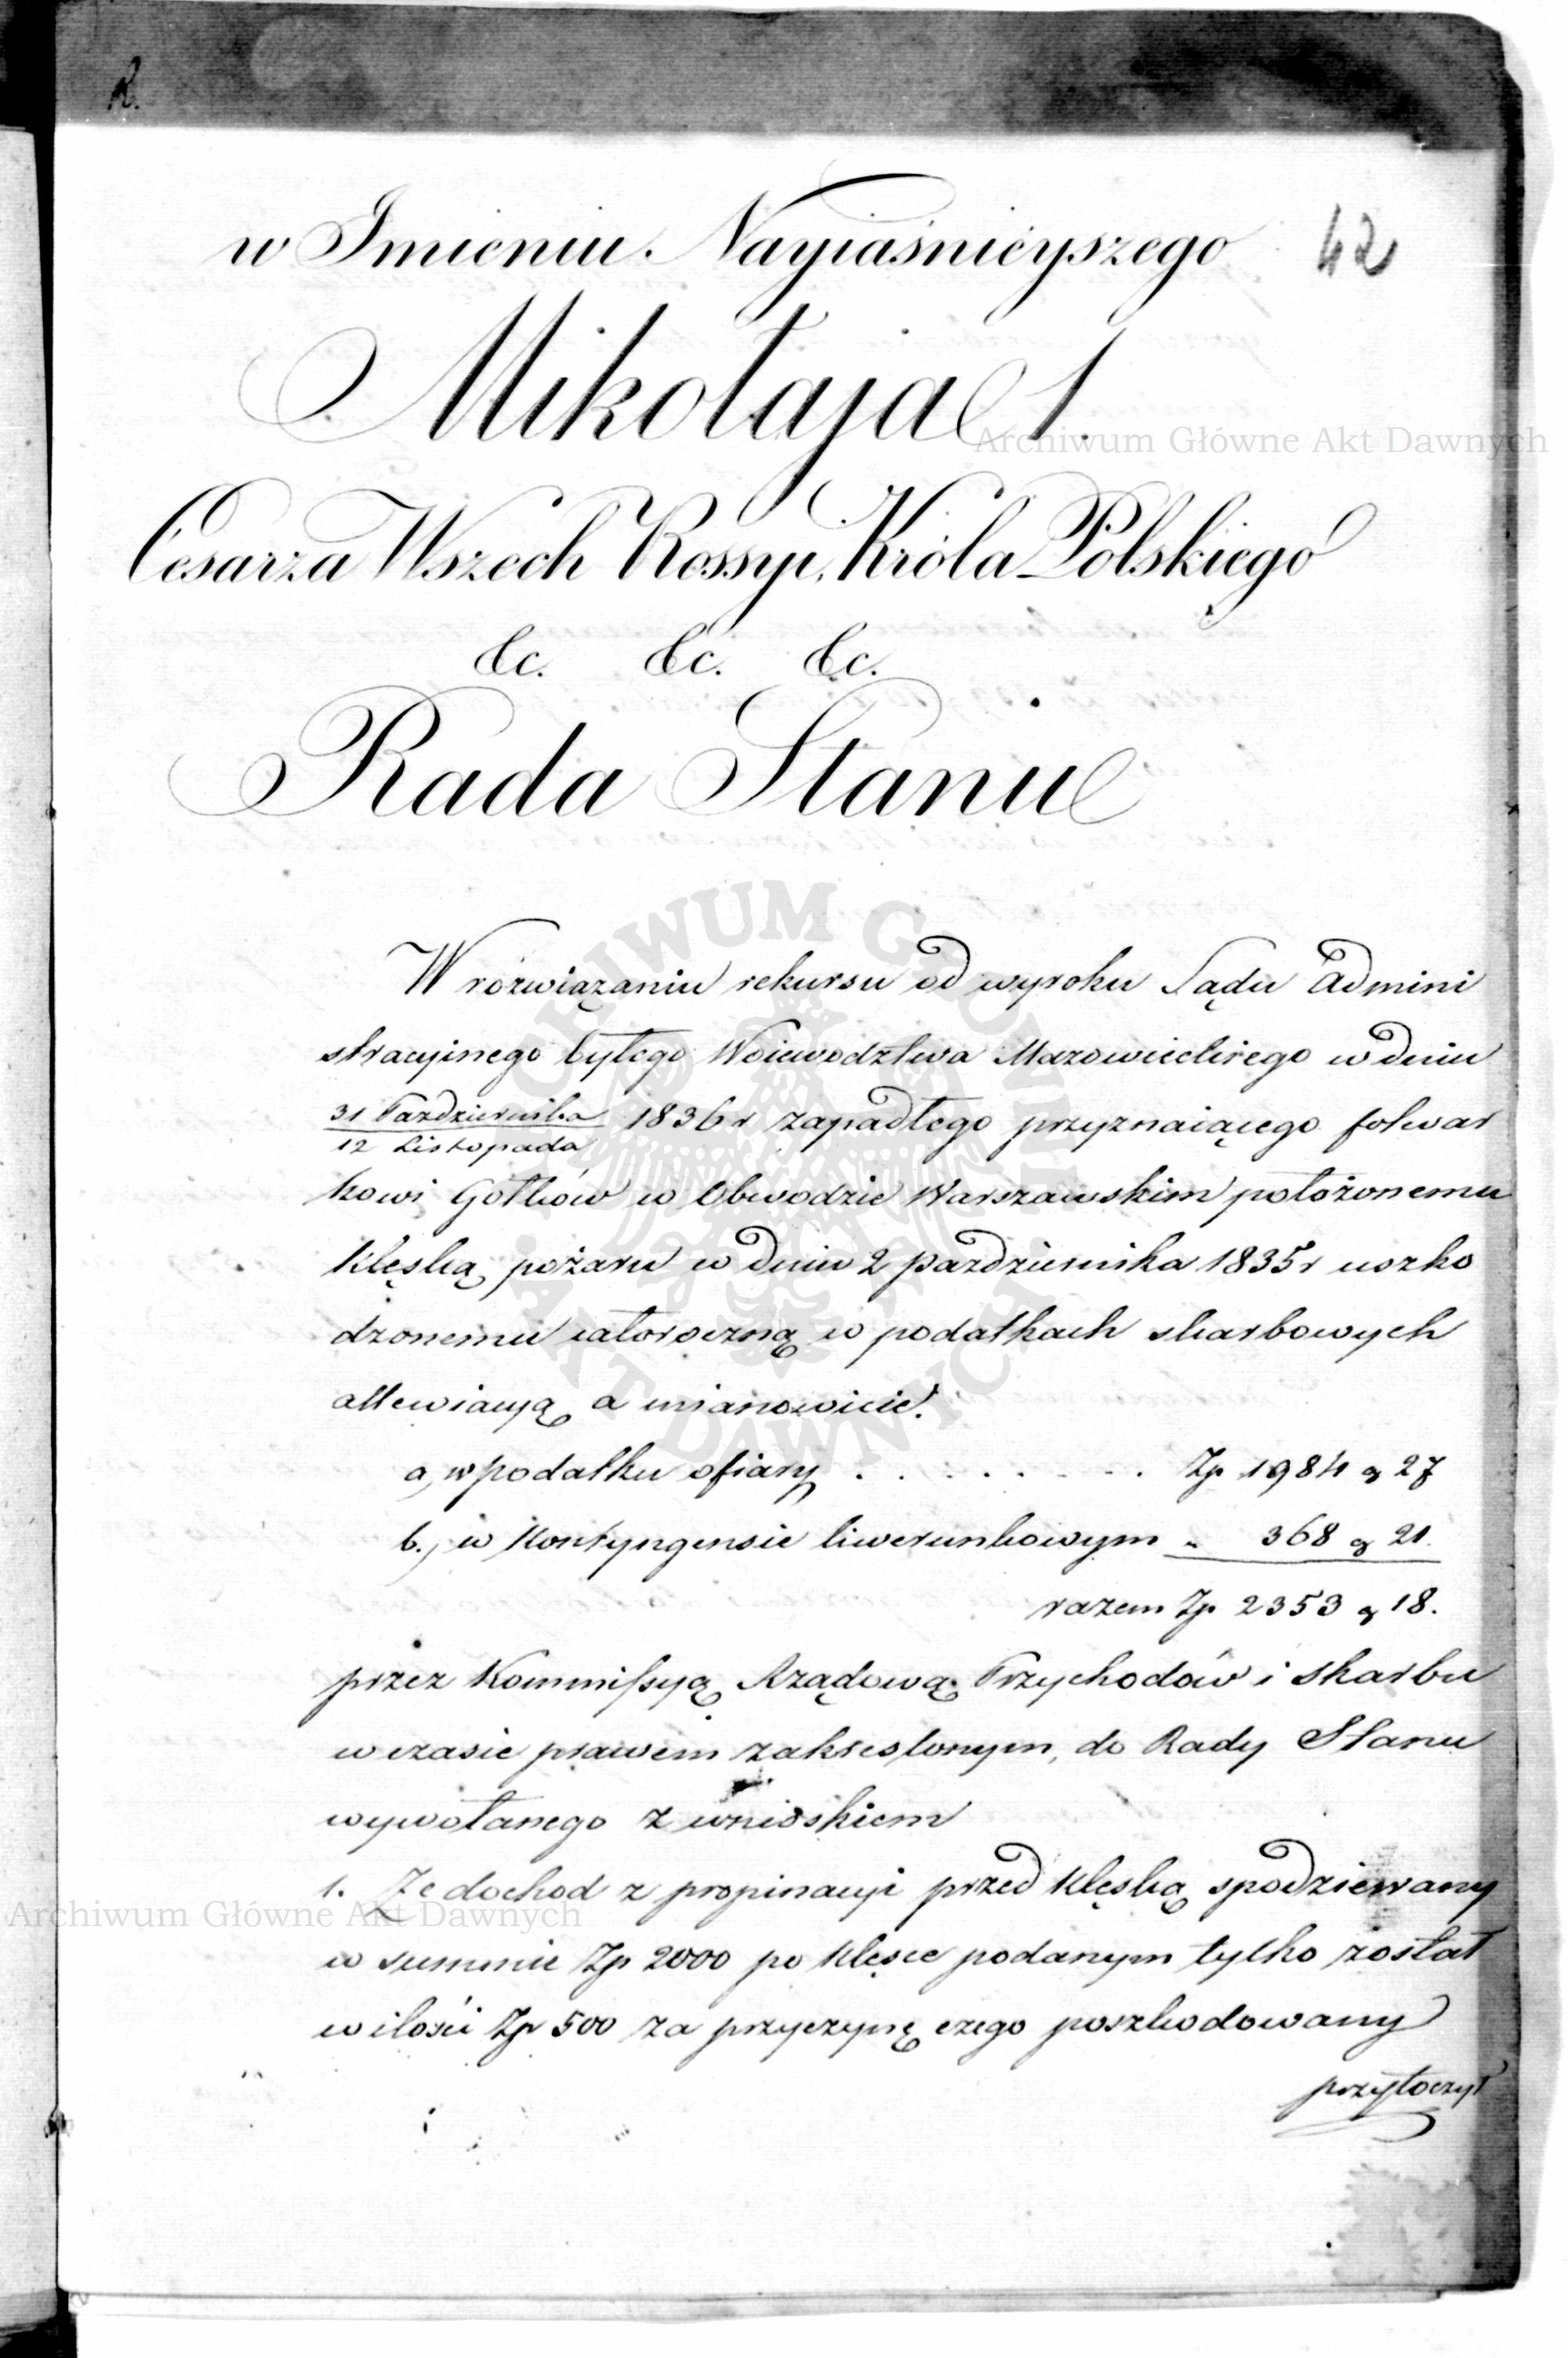 R.
42
w Imieniu Nayiaśnieyszego
Mikołaja 1.
Cesarza Wszech Rossyi, Króla Polskiego
&c. &c. &c.
Rada Stanu
W rozwiązaniu rekursu od wyroku Sądu Admini
stracyinego byłego Woiewodztwa Mazowieckiego w dniu
31 Pazdziernika
12 Listopada
1836 r zapadłego przyznaiącego folwar
kowi Gołków w Obwodzie Warszawskim położonemu
klęską pożaru w dniu 2 pazdziernika 1835 r uszko
dzonemu całoroczną w podatkach skarbowych
allewiacyą a mianowicie.
a, w podatku ofiary . . . . . . . . Zp 1984 g 27
b., w Kontyngensie liwerunkowym „ 368 g 21.
razem Zp 2353 g 18.
przez Kommissyą Rządową Przychodów i Skarbu
w czasie prawem zakreslonym, do Rady Stanu
wywołanego z wnioskiem
1. Ze dochod z propinacyi przed klęską spodziewany
w summie Zp 2000 po klęsce podanym tylko został
w ilości Zp 500 za przyczynę czego poszkodowany
przytoczył
Archiwum Główne Akt Dawnych
Archiwum Główne Akt Dawnych
ARCHIWUM GŁÓWNE
AKT DAWNYCH